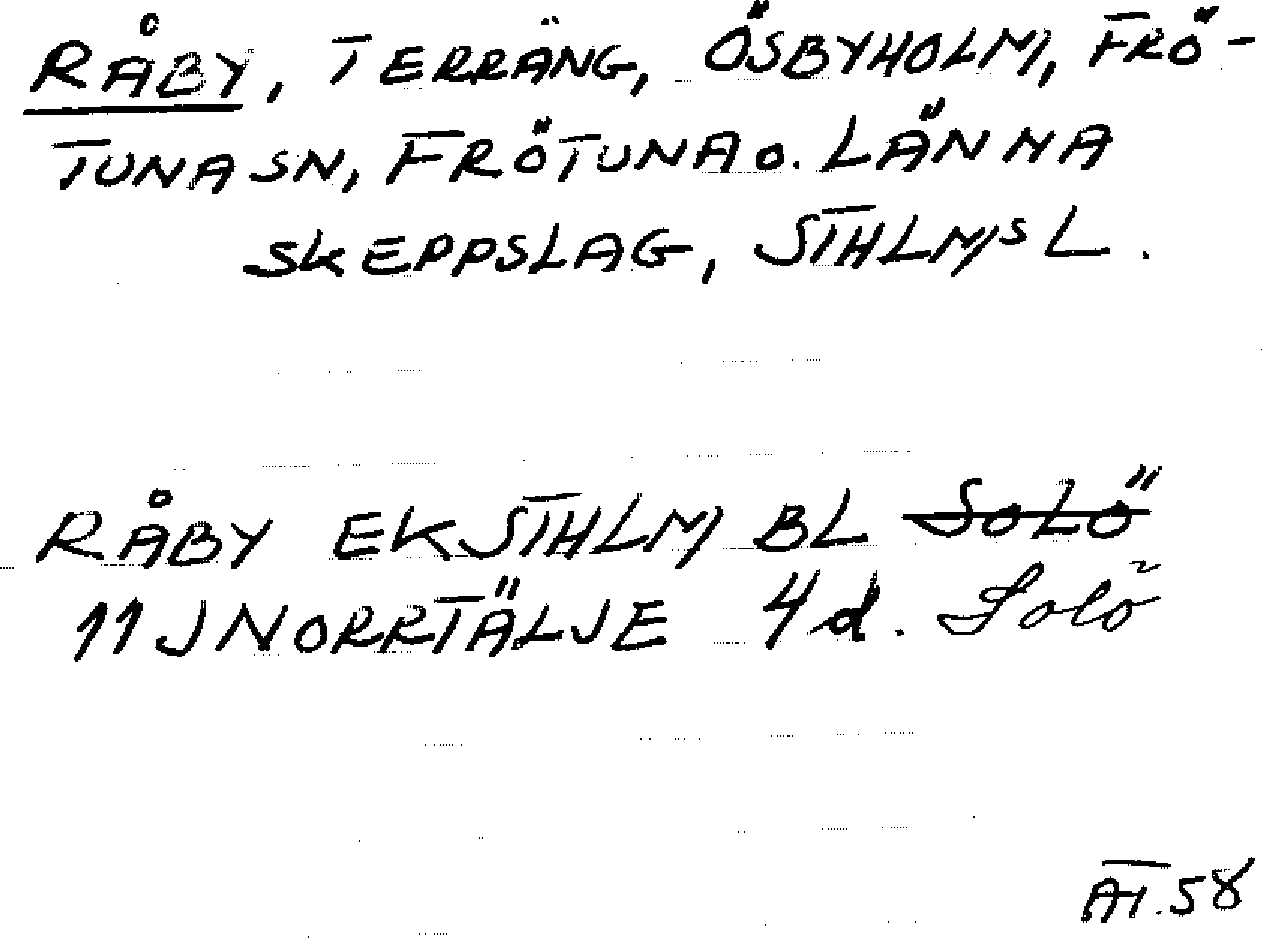 RÅBY, TERRÄNG, ÖSBYHOLM, FRÖ-
TUNA SN, FRÖTUNA O. LÄNNA
SKEPPSLAG, STHLMS L.
RÅBY EK STHLM BL SOLÖ
11 J NORRTÄLJE 4d. Solö
AT.58